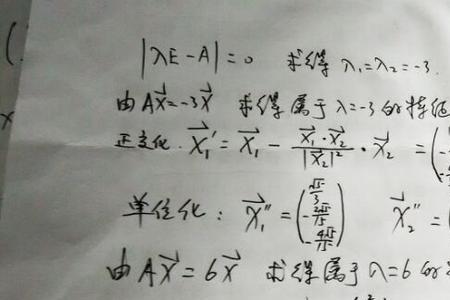 |λE-A|=0 求得 λ₁=λ₂=-3
由 AX⃗=-3X⃗ 求得属于 λ=-3 的特征
正交化. X⃗₁' = X⃗₁ - (X⃗₁·X⃗₂)/|X⃗₂|² · X⃗₂ = (
单位化: X⃗₁'' = (√5/3, -2√5/15, -4√5/15) X⃗₂'' = (
由 AX⃗ = 6X⃗ 求得属于 λ=6 的